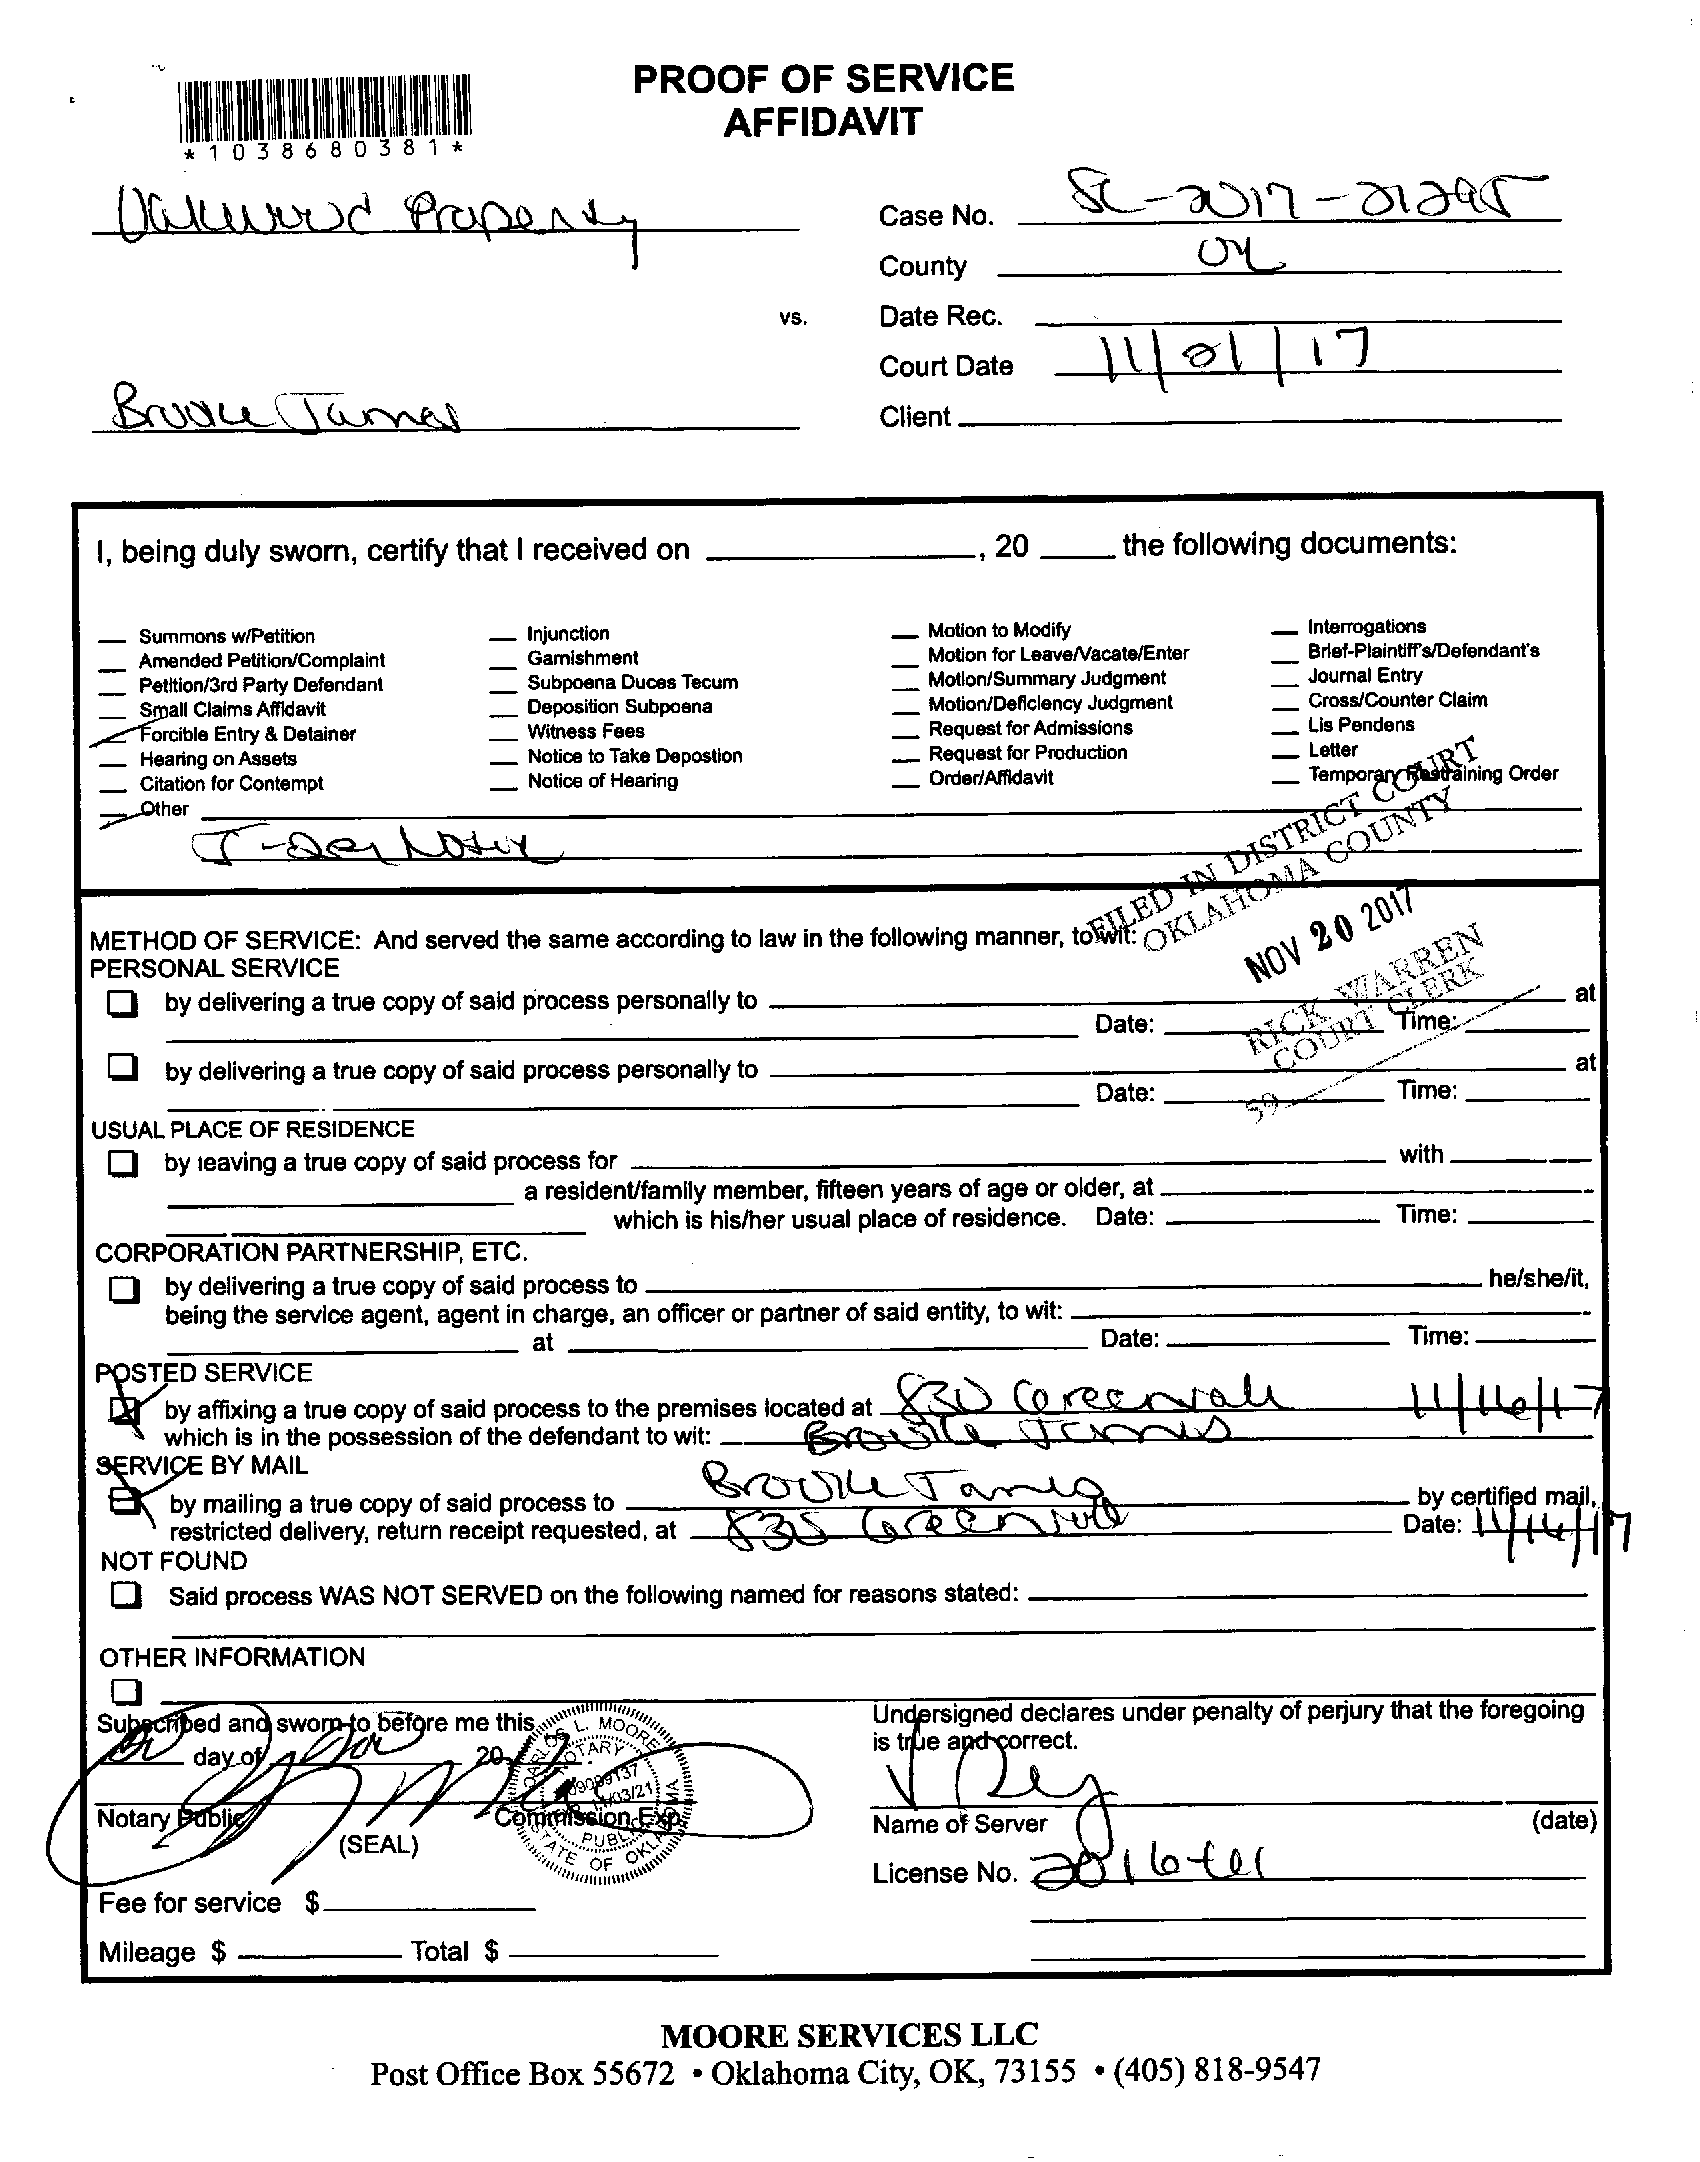 PROOF OF SERVICE
AFFIDAVIT
*1038680381*
Oakwood Property
Case No. SC-2017-21295
County OK
vs.
Date Rec.
Court Date 11/21/17
Brooke James
Client
I, being duly sworn, certify that I received on ____, 20 ____ the following documents:
Summons w/Petition
Amended Petition/Complaint
Petition/3rd Party Defendant
Small Claims Affidavit
Forcible Entry & Detainer
Hearing on Assets
Citation for Contempt
Other
Injunction
Garnishment
Subpoena Duces Tecum
Deposition Subpoena
Witness Fees
Notice to Take Depostion
Notice of Hearing
Motion to Modify
Motion for Leave/Vacate/Enter
Motion/Summary Judgment
Motion/Deficiency Judgment
Request for Admissions
Request for Production
Order/Affidavit
Interrogations
Brief-Plaintiff's/Defendant's
Journal Entry
Cross/Counter Claim
Lis Pendens
Letter
Temporary Restraining Order
FILED IN DISTRICT COURT
OKLAHOMA COUNTY
NOV 20 2017
RICK WARREN
COURT CLERK
59
METHOD OF SERVICE: And served the same according to law in the following manner, to wit:
PERSONAL SERVICE
by delivering a true copy of said process personally to ____ at
Date: ____ Time:
by delivering a true copy of said process personally to ____ at
Date: ____ Time:
USUAL PLACE OF RESIDENCE
by leaving a true copy of said process for ____ with
a resident/family member, fifteen years of age or older, at
which is his/her usual place of residence. Date: ____ Time:
CORPORATION PARTNERSHIP, ETC.
by delivering a true copy of said process to ____ he/she/it,
being the service agent, agent in charge, an officer or partner of said entity, to wit:
at ____ Date: ____ Time:
POSTED SERVICE
by affixing a true copy of said process to the premises located at 830 Greenvale 11/16/17
which is in the possession of the defendant to wit: Brooke James
SERVICE BY MAIL
by mailing a true copy of said process to Brooke James by certified mail,
restricted delivery, return receipt requested, at Greenvale Date: 11/16/17
NOT FOUND
Said process WAS NOT SERVED on the following named for reasons stated:
OTHER INFORMATION
Subscribed and sworn to before me this
day of Nov 20
Notary Public
(SEAL)
Commission Exp.
CARLOS L. MOORE
NOTARY
PUBLIC
STATE OF OKLAHOMA
Undersigned declares under penalty of perjury that the foregoing
is true and correct.
Name of Server (date)
License No.
Fee for service $
Mileage $ ____ Total $
MOORE SERVICES LLC
Post Office Box 55672 • Oklahoma City, OK, 73155 • (405) 818-9547